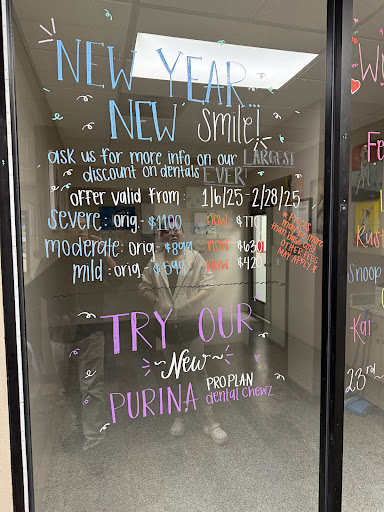 NEW YEAR...
NEW Smile!
ask us for more info on our LARGEST
discount on dentals EVER!
offer valid from: 1/6/25 - 2/28/25
severe: orig - $1100 now - $770
moderate: orig - $899 now $630
mild: orig. $599 now $420
OTHER FEES
MAY APPLY
TRY OUR
New
PURINA PRO PLAN
dental chewz
Snoop
Kai
23rd